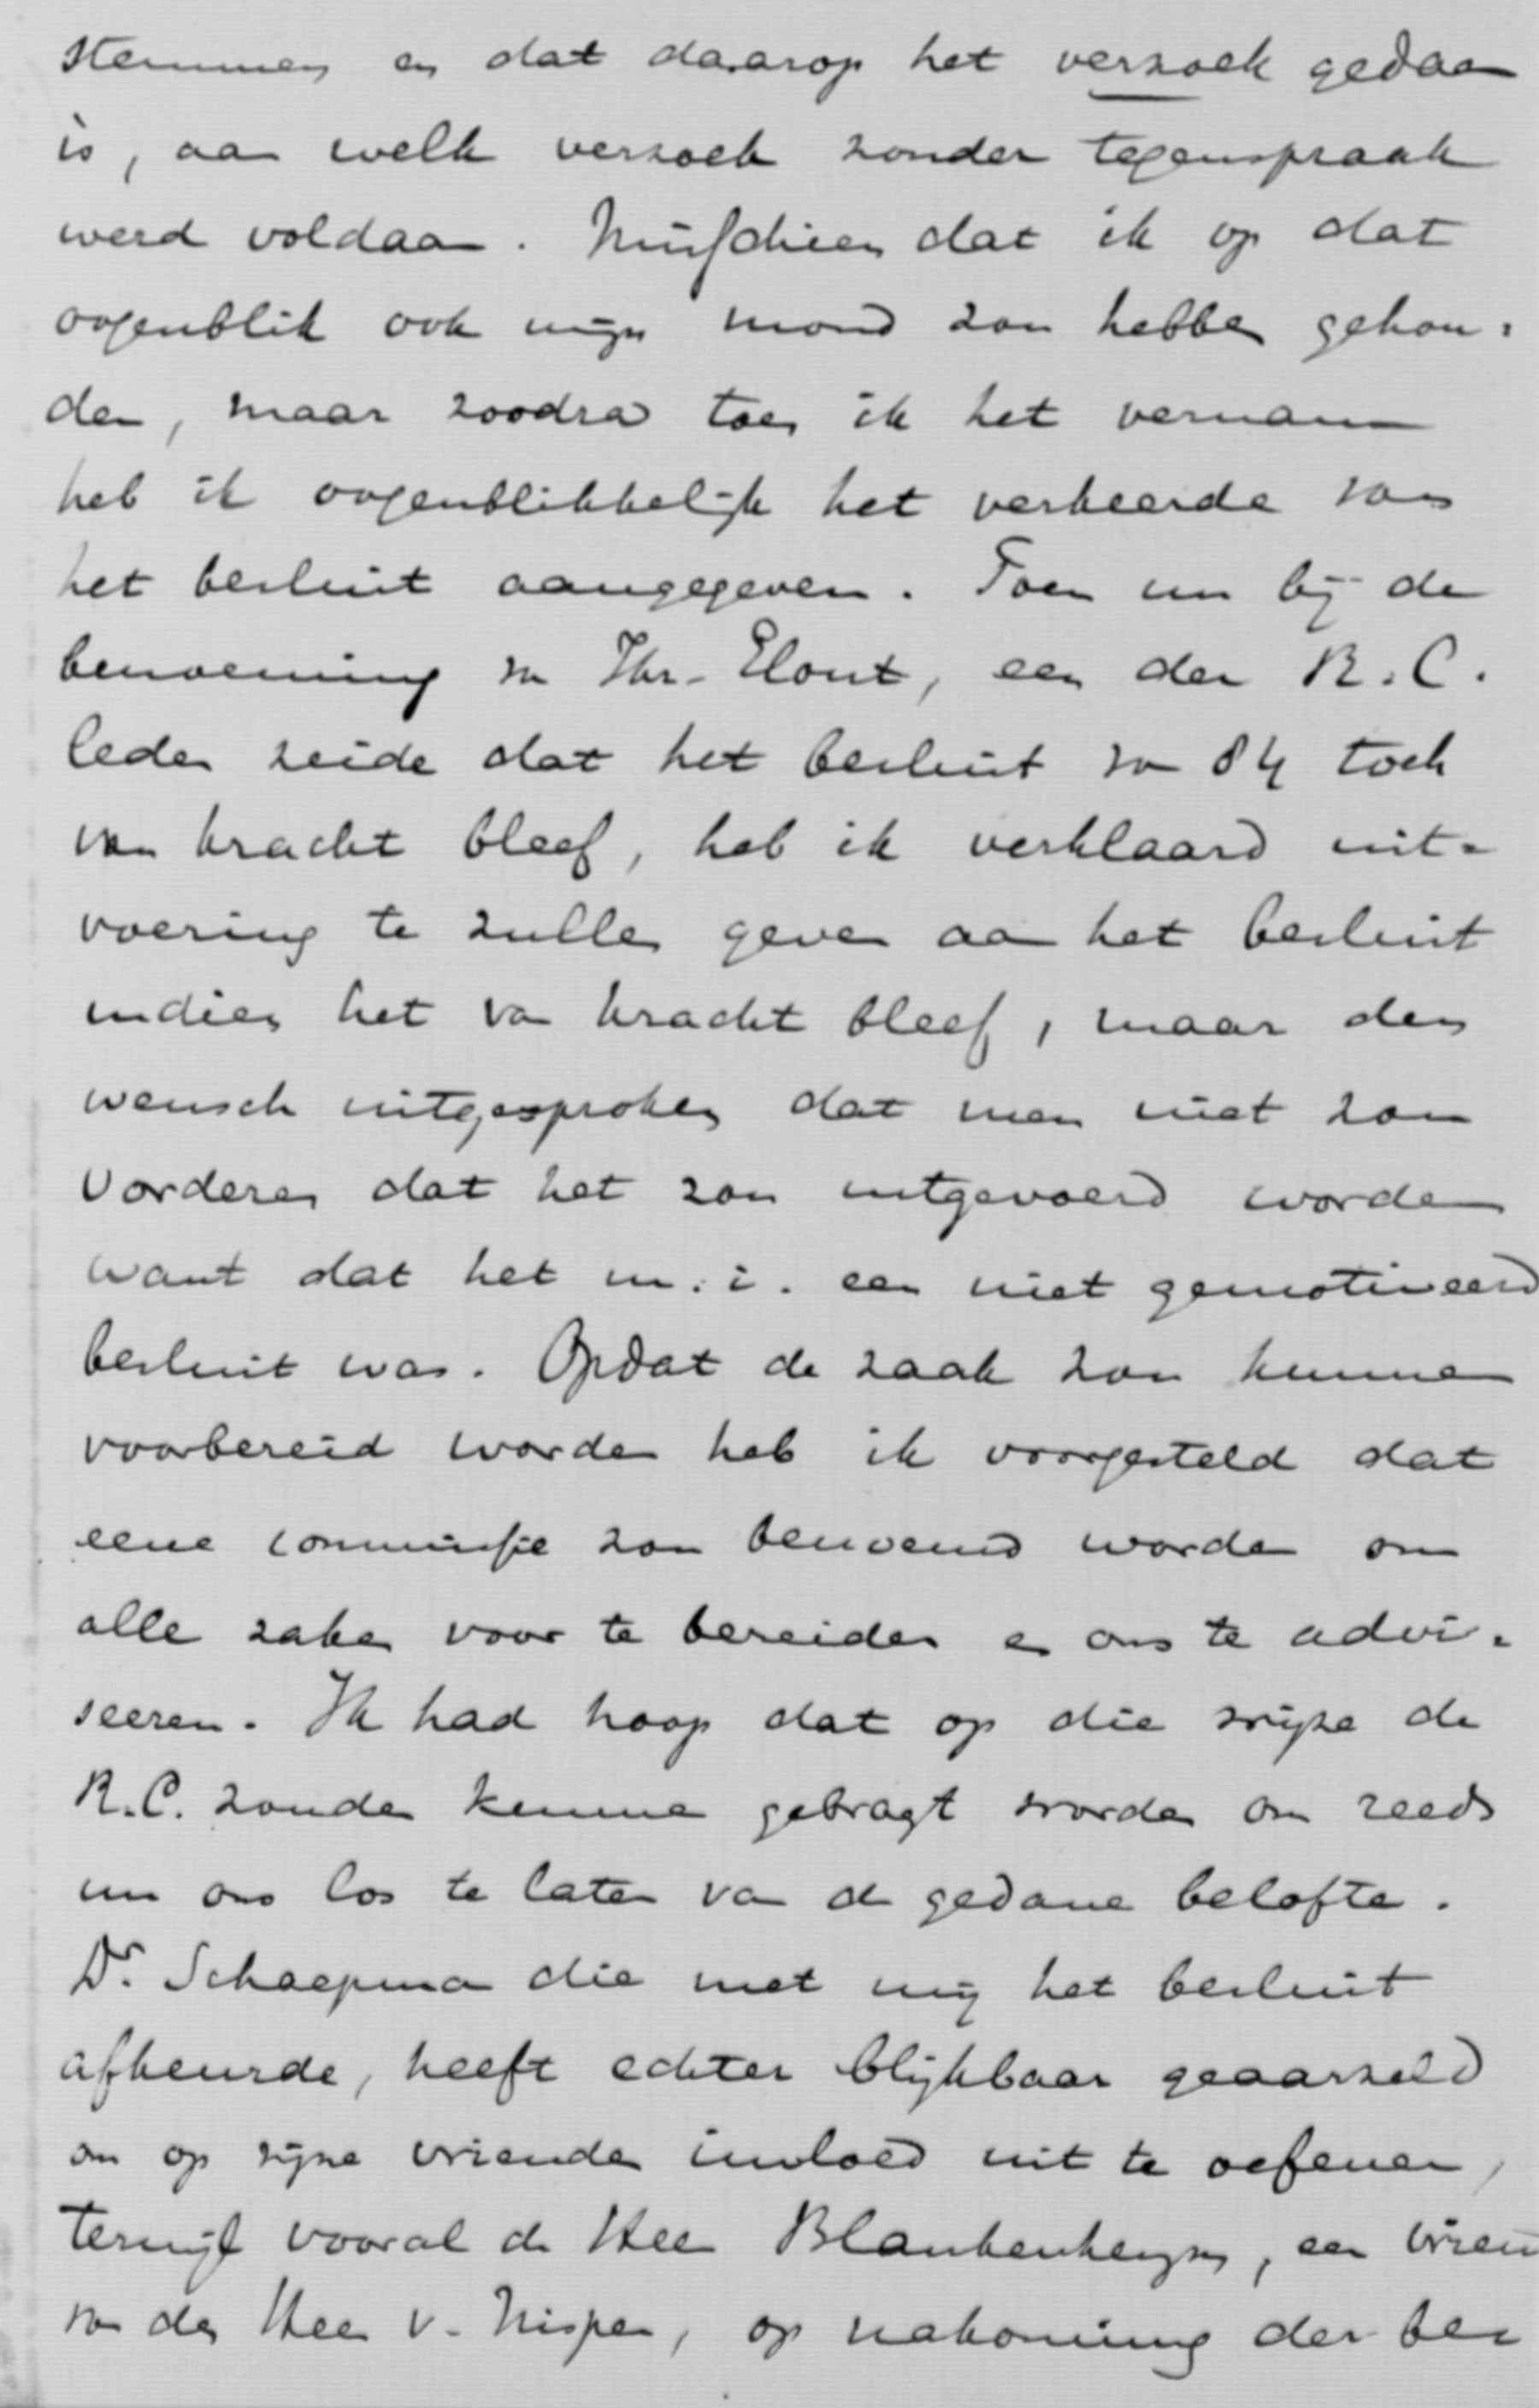 stemmen en dat daarop het verzoek gedaan
is, aan welk verzoek zonder tegenspraak
werd voldaan. Misschien dat ik op dat
oogenblik ook mijn mond zou hebben gehou-
den, maar zoodra toen ik het vernam
heb ik oogenblikkelijk het verkeerde van
het besluit aangegeven. Toen nu bij de
benoeming van Jhr. Elout, een der R.C.
leden zeide dat het besluit van 84 toch
van kracht bleef, heb ik verklaard uit-
voering te zullen geven aan het besluit
indien het van kracht bleef, maar den
wensch uitgesproken dat men niet zou
vorderen dat het zou uitgevoerd worden
want dat het m.i. een niet gemotiveerd
besluit was. Opdat de zaak zou kunnen
voorbereid worden heb ik voorgesteld dat
eene commissie zou benoemd worden om
alle zaken voor te bereiden en ons te advi-
seeren. Ik had hoop dat op die wijze de
R.C. zouden kunnen gebragt worden om reeds
nu ons los te laten van de gedane belofte.
Dr. Schaepman die met mij het besluit
afkeurde, heeft echter blijkbaar geaarzeld
om op zijne vrienden invloed uit te oefenen,
terwijl vooral de Heer Blankenheym, een vriend
van den Heer v. Nispen, op nakoming der be-